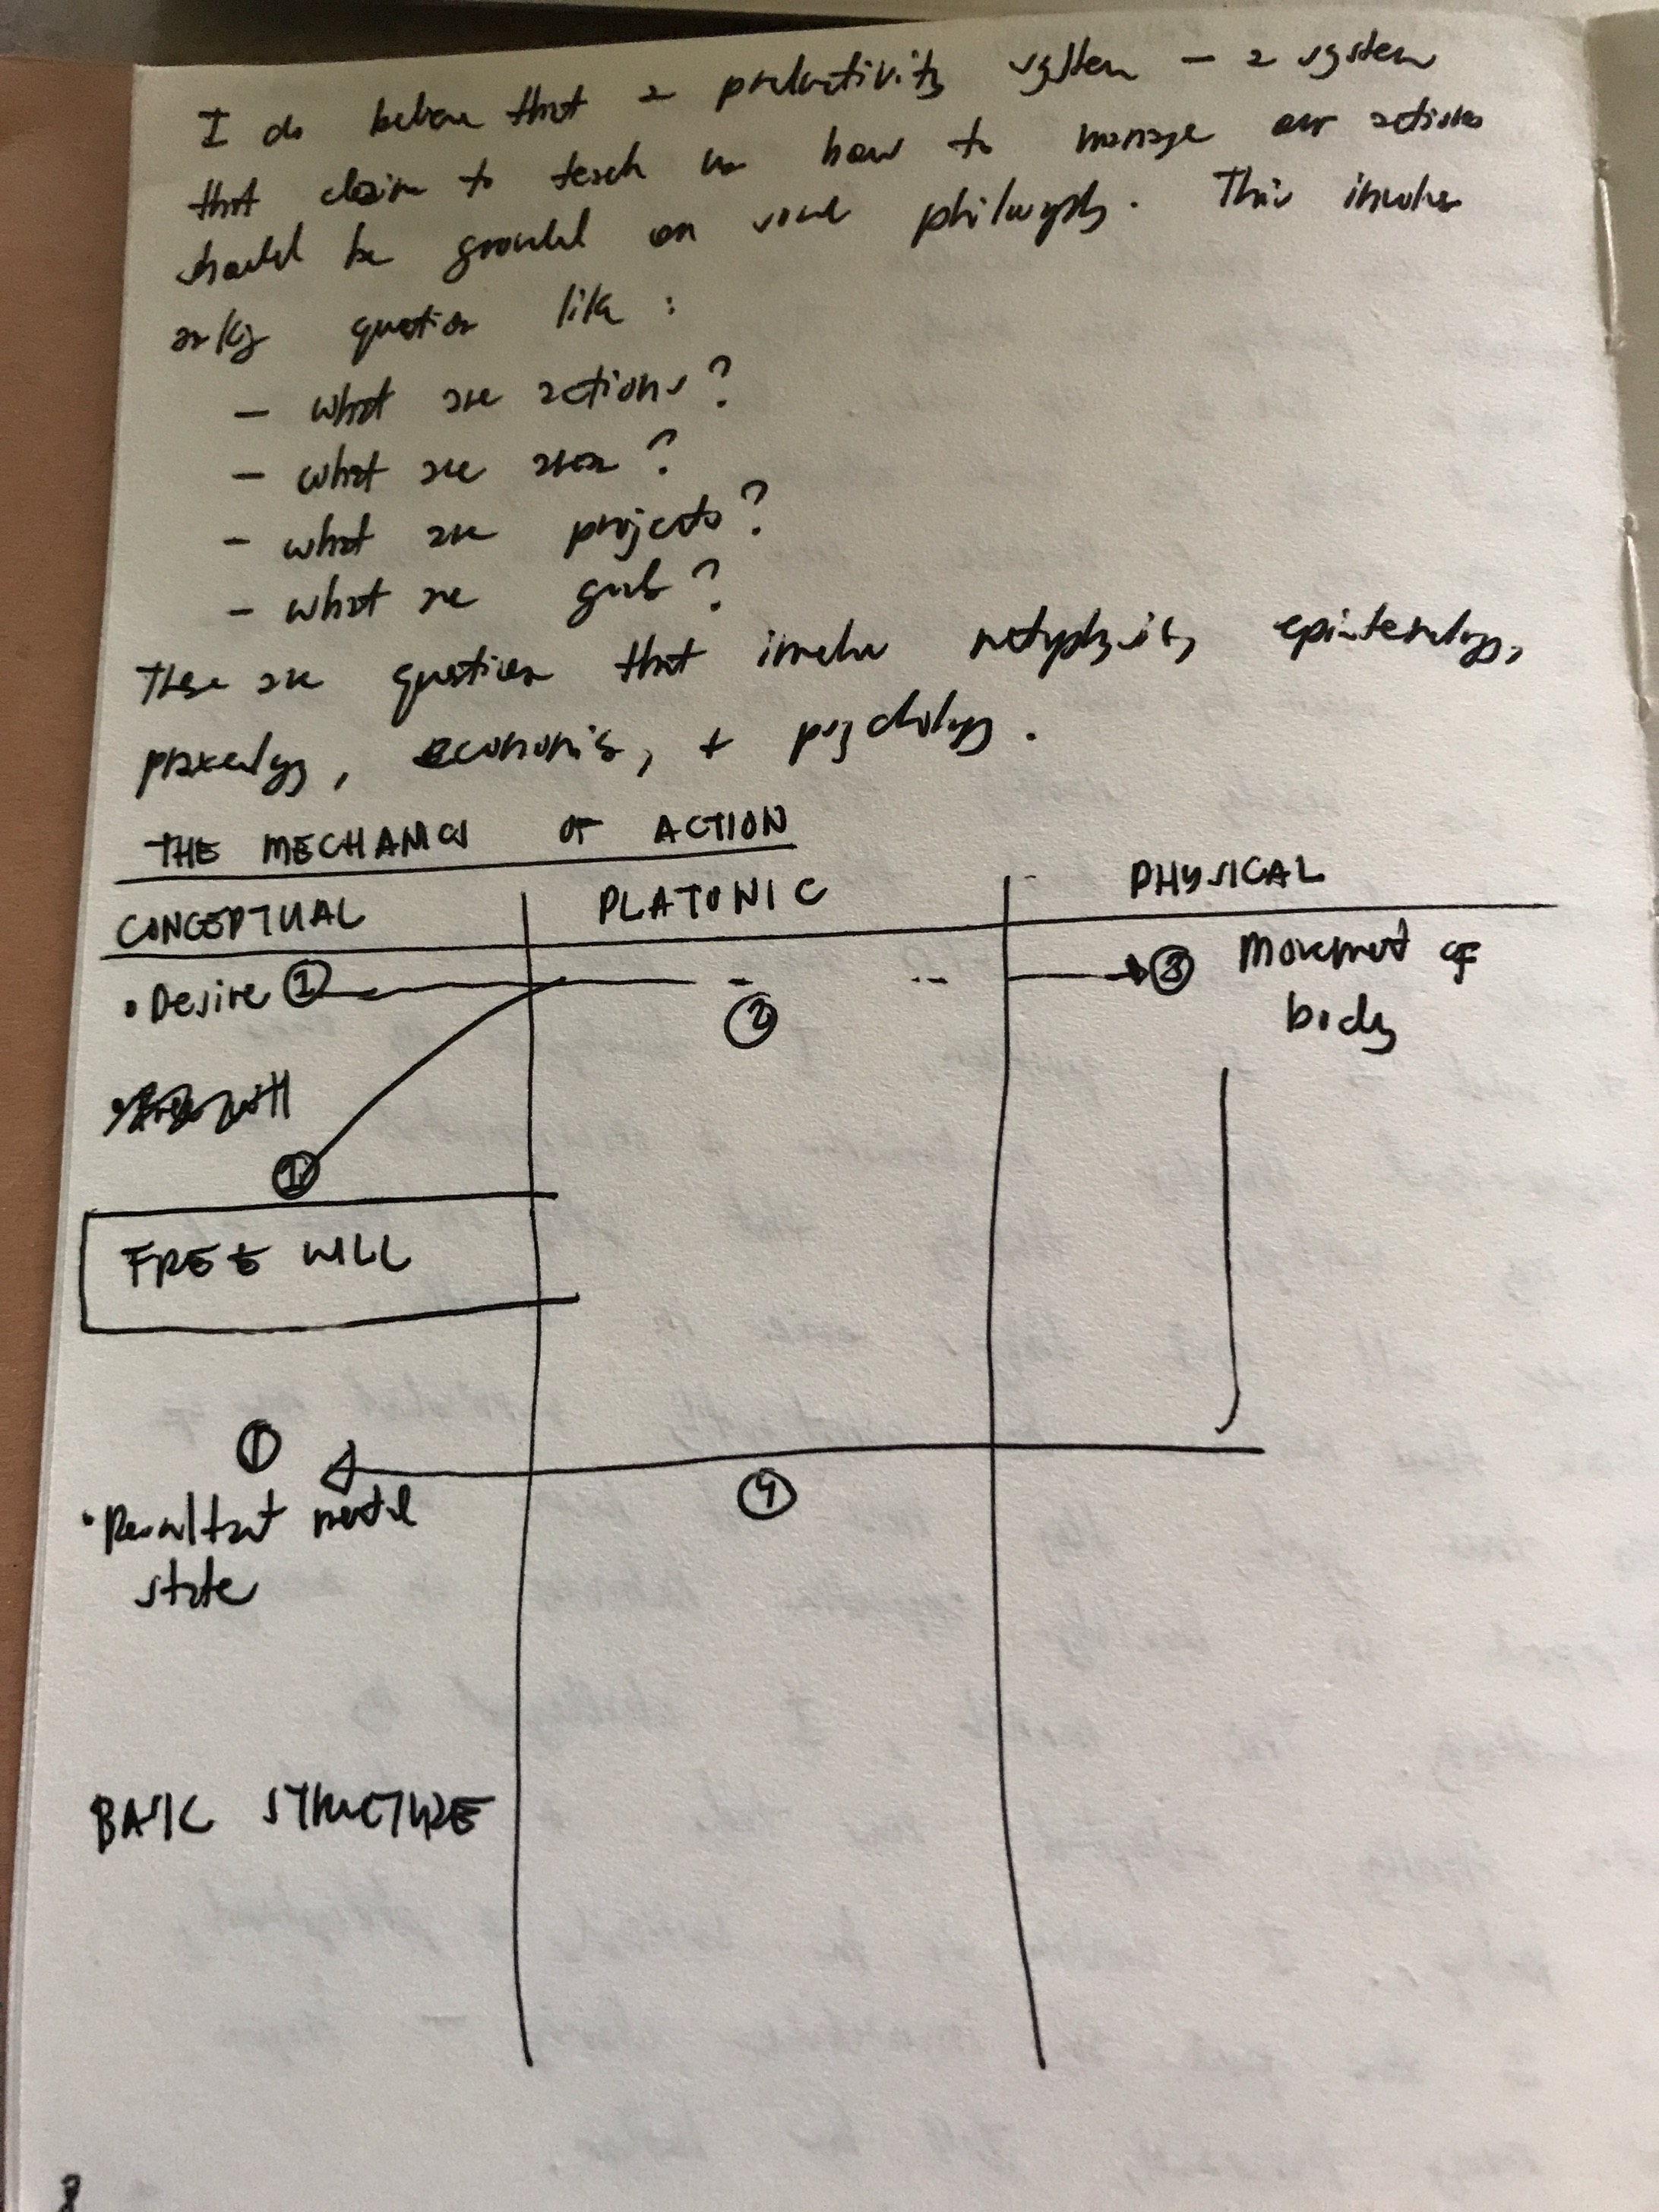 I do believe that a productivity system — a system
that claim to teach us how to manage our actions
should be grounded on sound philosophy. This involves
asking question like :
— what are actions?
— what are areas?
— what are projects?
— what are goals?
These are questions that involve metaphysics, epistemology,
praxeology, economics, + psychology.
THE MECHANICS OF ACTION
CONCEPTUAL PLATONIC PHYSICAL
• Desire 1 2 3 Movement of
body
1
FREE WILL
4
• Resultant mental
state
BASIC STRUCTURE
8